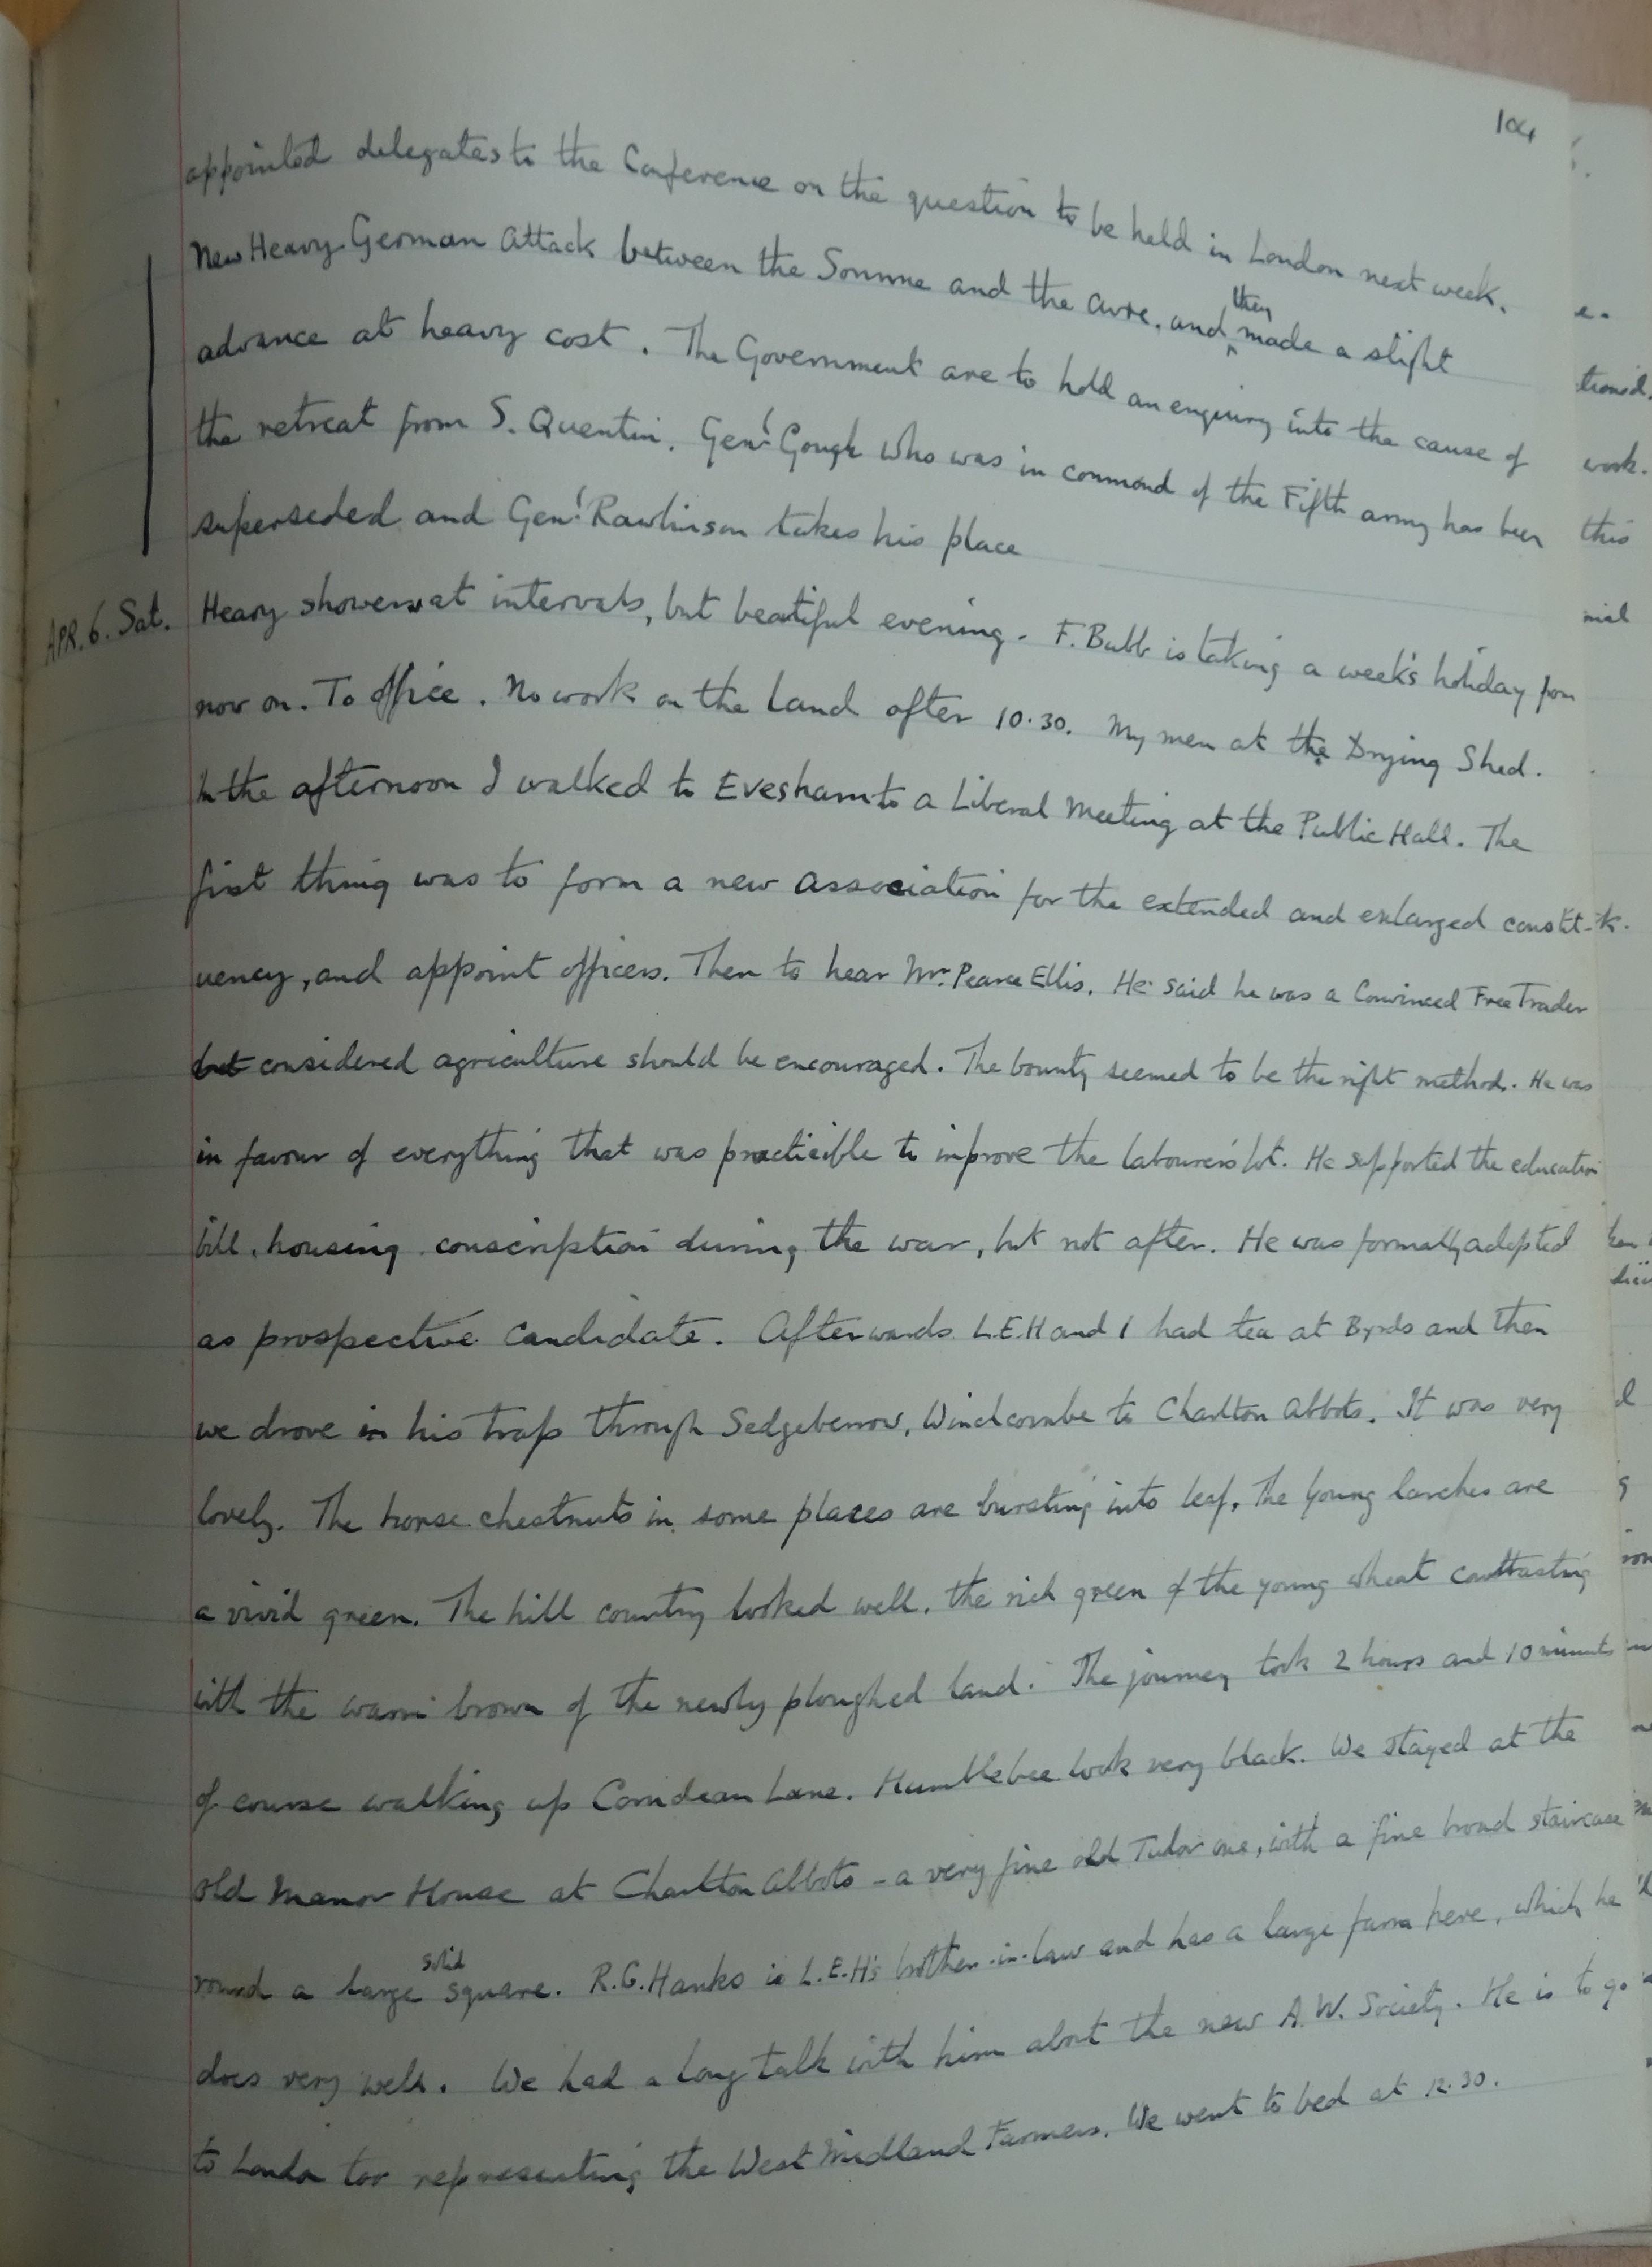 104
appointed delegates to the Conference on the question to be held in London next week.
New Heavy German Attack between the Somme and the Avre, and they made a slight
advance at heavy cost. The Government are to hold an enquiry into the cause of
the retreat from S. Quentin. Genl Gough who was in command of the Fifth army has been
superseded and Genl Rawlinson takes his place
APR. 6. Sat. Heavy showers at intervals, but beatiful evening. F. Bubb is taking a week's holiday from
now on. To office. No work on the Land after 10.30. My men at the Drying Shed.
In the afternoon I walked to Evesham to a Liberal Meeting at the Public Hall. The
first thing was to form a new association for the extended and enlarged constit-
uency, and appoint officers. Then to hear Mr. Pearce Ellis. He said he was a Convinced Free Trader
but considered agriculture should be encouraged. The bounty seemed to be the right method. He was
in favour of everything that was practicible to improve the labourer's lot. He supported the education
bill, housing, conscription during the war, but not after. He was formally adopted
as prospective candidate. Afterwards L.E.H and I had tea at Byrds and then
we drove in his trap through Sedgeberrow, Winchcombe to Charlton Abbots. It was very
lovely. The horse chestnuts in some places are bursting into leaf, The young larches are
a vivid green. The hill country looked well, the rich green of the young wheat contrasting
with the warm brown of the newly ploughed land. The journey took 2 hours and 10 minutes
of course walking up Corndean Lane. Humblebee look very black. We stayed at the
old Manor House at Charlton Abbots - a very fine old Tudor one, with a fine broad staircase
round a large solid square. R.G. Hanks is L.E.H's brother-in-law and has a large farm here, which he
does very well. We had a long talk with him about the new A.W. Society. He is to go
to London too representing the West Midland Farmers. We went to bed at 12.30.